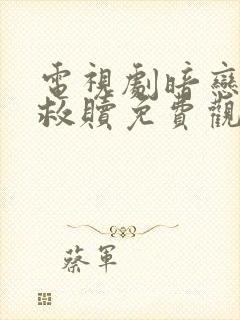 電視劇暗戀
救贖免費觀
蔡軍